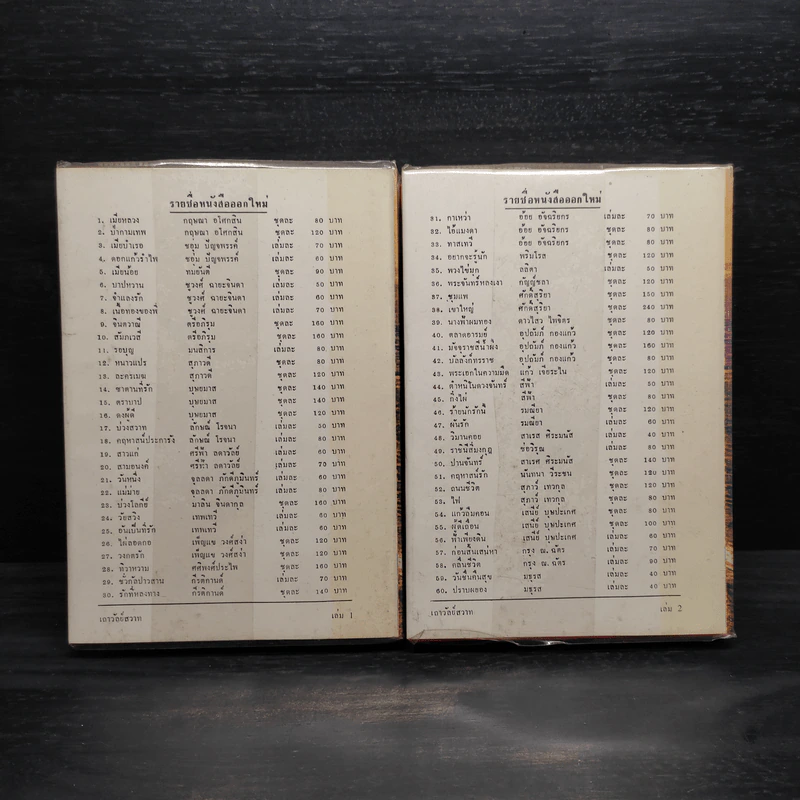 รายชื่อหนังสือออกใหม่
1. เมียหลวง กฤษณา อโศกสิน ชุดละ 80 บาท
2. ป่ากามเทพ กฤษณา อโศกสิน ชุดละ 120 บาท
3. เมียบำเรอ ชอุ่ม ปัญจพรรค์ เล่มละ 70 บาท
4. ดอกแก้วรำไพ ชอุ่ม ปัญจพรรค์ เล่มละ 60 บาท
5. เมียน้อย ทมยันตี ชุดละ 90 บาท
6. บาปหวาน ชูวงศ์ ฉายะจินดา เล่มละ 50 บาท
7. จำเลยรัก ชูวงศ์ ฉายะจินดา เล่มละ 60 บาท
8. เนื้อทองของพี่ ชูวงศ์ ฉายะจินดา เล่มละ 70 บาท
9. จินตวาตี ตรีอภิรุม ชุดละ 160 บาท
10. สัมภเวสี ตรีอภิรุม ชุดละ 160 บาท
11. รอยบุญ มนสิการ เล่มละ 80 บาท
12. หนาวแปร สุภาวดี ชุดละ 80 บาท
13. ละครเมฆ สุภาวดี ชุดละ 120 บาท
14. ซาตานที่รัก บุษยมาส ชุดละ 140 บาท
15. ตราบาป บุษยมาส ชุดละ 140 บาท
16. ดงผู้ดี บุษยมาส ชุดละ 120 บาท
17. บ่วงสวาท ลักษณ์ โรจนา เล่มละ 50 บาท
18. คฤหาสน์ปะการัง ลักษณ์ โรจนา ชุดละ 80 บาท
19. สาวแก่ ศรีฟ้า ลดาวัลย์ เล่มละ 60 บาท
20. สามอนงค์ ศรีฟ้า ลดาวัลย์ เล่มละ 70 บาท
21. วันหนึ่ง จุลลดา ภักดีภูมินทร์ เล่มละ 60 บาท
22. แม่ม่าย จุลลดา ภักดีภูมินทร์ เล่มละ 60 บาท
23. บ่วงโลกีย์ มาลิน จินดากุล ชุดละ 80 บาท
24. วัยสวิง เทพเทวี เล่มละ 60 บาท
25. อันเป็นที่รัก เทพเทวี เล่มละ 60 บาท
26. ไผ่ลอดกอ เพ็ญแข วงศ์สง่า ชุดละ 120 บาท
27. วงกตรัก เพ็ญแข วงศ์สง่า ชุดละ 120 บาท
28. ทิวาหวาม ศศิพงศ์ประไพ ชุดละ 160 บาท
29. ชั่วกัลปาวสาน กีรติกานต์ เล่มละ 70 บาท
30. รักที่หลงทาง กีรติกานต์ ชุดละ 140 บาท
เถาวัลย์สวาท เล่ม 1
รายชื่อหนังสือออกใหม่
31. กาเหว่า อ้อย อัจฉริยกร เล่มละ 70 บาท
32. ไอ้แมงดา อ้อย อัจฉริยกร ชุดละ 80 บาท
33. ทาสเทวี อ้อย อัจฉริยกร ชุดละ 80 บาท
34. อยากจะรู้นัก พริมโรส ชุดละ 120 บาท
35. พวงไข่มุก ลลิตา เล่มละ 50 บาท
36. พระจันทร์หลงเงา กัญญ์ชลา ชุดละ 160 บาท
37. ชุมแพ ศักดิ์สุริยา ชุดละ 150 บาท
38. เขาใหญ่ ศักดิ์สุริยา ชุดละ 240 บาท
39. นางฟ้าผมทอง ดาวไสว ไพจิตร ชุดละ 80 บาท
40. ตลาดอารมย์ อุปถัมภ์ กองแก้ว ชุดละ 120 บาท
41. มัจฉราสีน้ำผึ้ง อุปถัมภ์ กองแก้ว ชุดละ 160 บาท
42. บัลลังก์ทรราช อุปถัมภ์ กองแก้ว ชุดละ 80 บาท
43. พระเอกในความมืด แก้ว เจียระไน ชุดละ 120 บาท
44. ตำหนิในดวงจันทร์ สีฟ้า เล่มละ 50 บาท
45. กิ่งไผ่ สีฟ้า ชุดละ 80 บาท
46. ร้ายนักรักนี้ รมณียา ชุดละ 120 บาท
47. ฝันรัก รมณียา เล่มละ 60 บาท
48. วิมานคอย สาเรส ศิระมนัส เล่มละ 40 บาท
49. ราชินีสีมงกุฎ ช่อวิรุณ ชุดละ 80 บาท
50. ปานจันทร์ สาเรศ ศิระมนัส ชุดละ 140 บาท
51. คฤหาสน์รัก นันทนา วีระชน ชุดละ 120 บาท
52. ถนนชีวิต สุภาว์ เทวกุล ชุดละ 120 บาท
53. ไฟ สุภาว์ เทวกุล ชุดละ 80 บาท
54. แก้วกึ๋นคอน เสนีย์ บุษปะเกศ ชุดละ 80 บาท
55. ผู้ดีเถื่อน เสนีย์ บุษปะเกศ ชุดละ 100 บาท
56. ฟ้าเพียงดิน เสนีย์ บุษปะเกศ เล่มละ 60 บาท
57. ก่อนสิ้นเสน่หา กรุง ณ.ฉัตร เล่มละ 70 บาท
58. คลื่นชีวิต กรุง ณ.ฉัตร ชุดละ 90 บาท
59. วันชื่นคืนสุข มธุรส เล่มละ 40 บาท
60. ปราบพยอง มธุรส เล่มละ 40 บาท
เถาวัลย์สวาท เล่ม 2